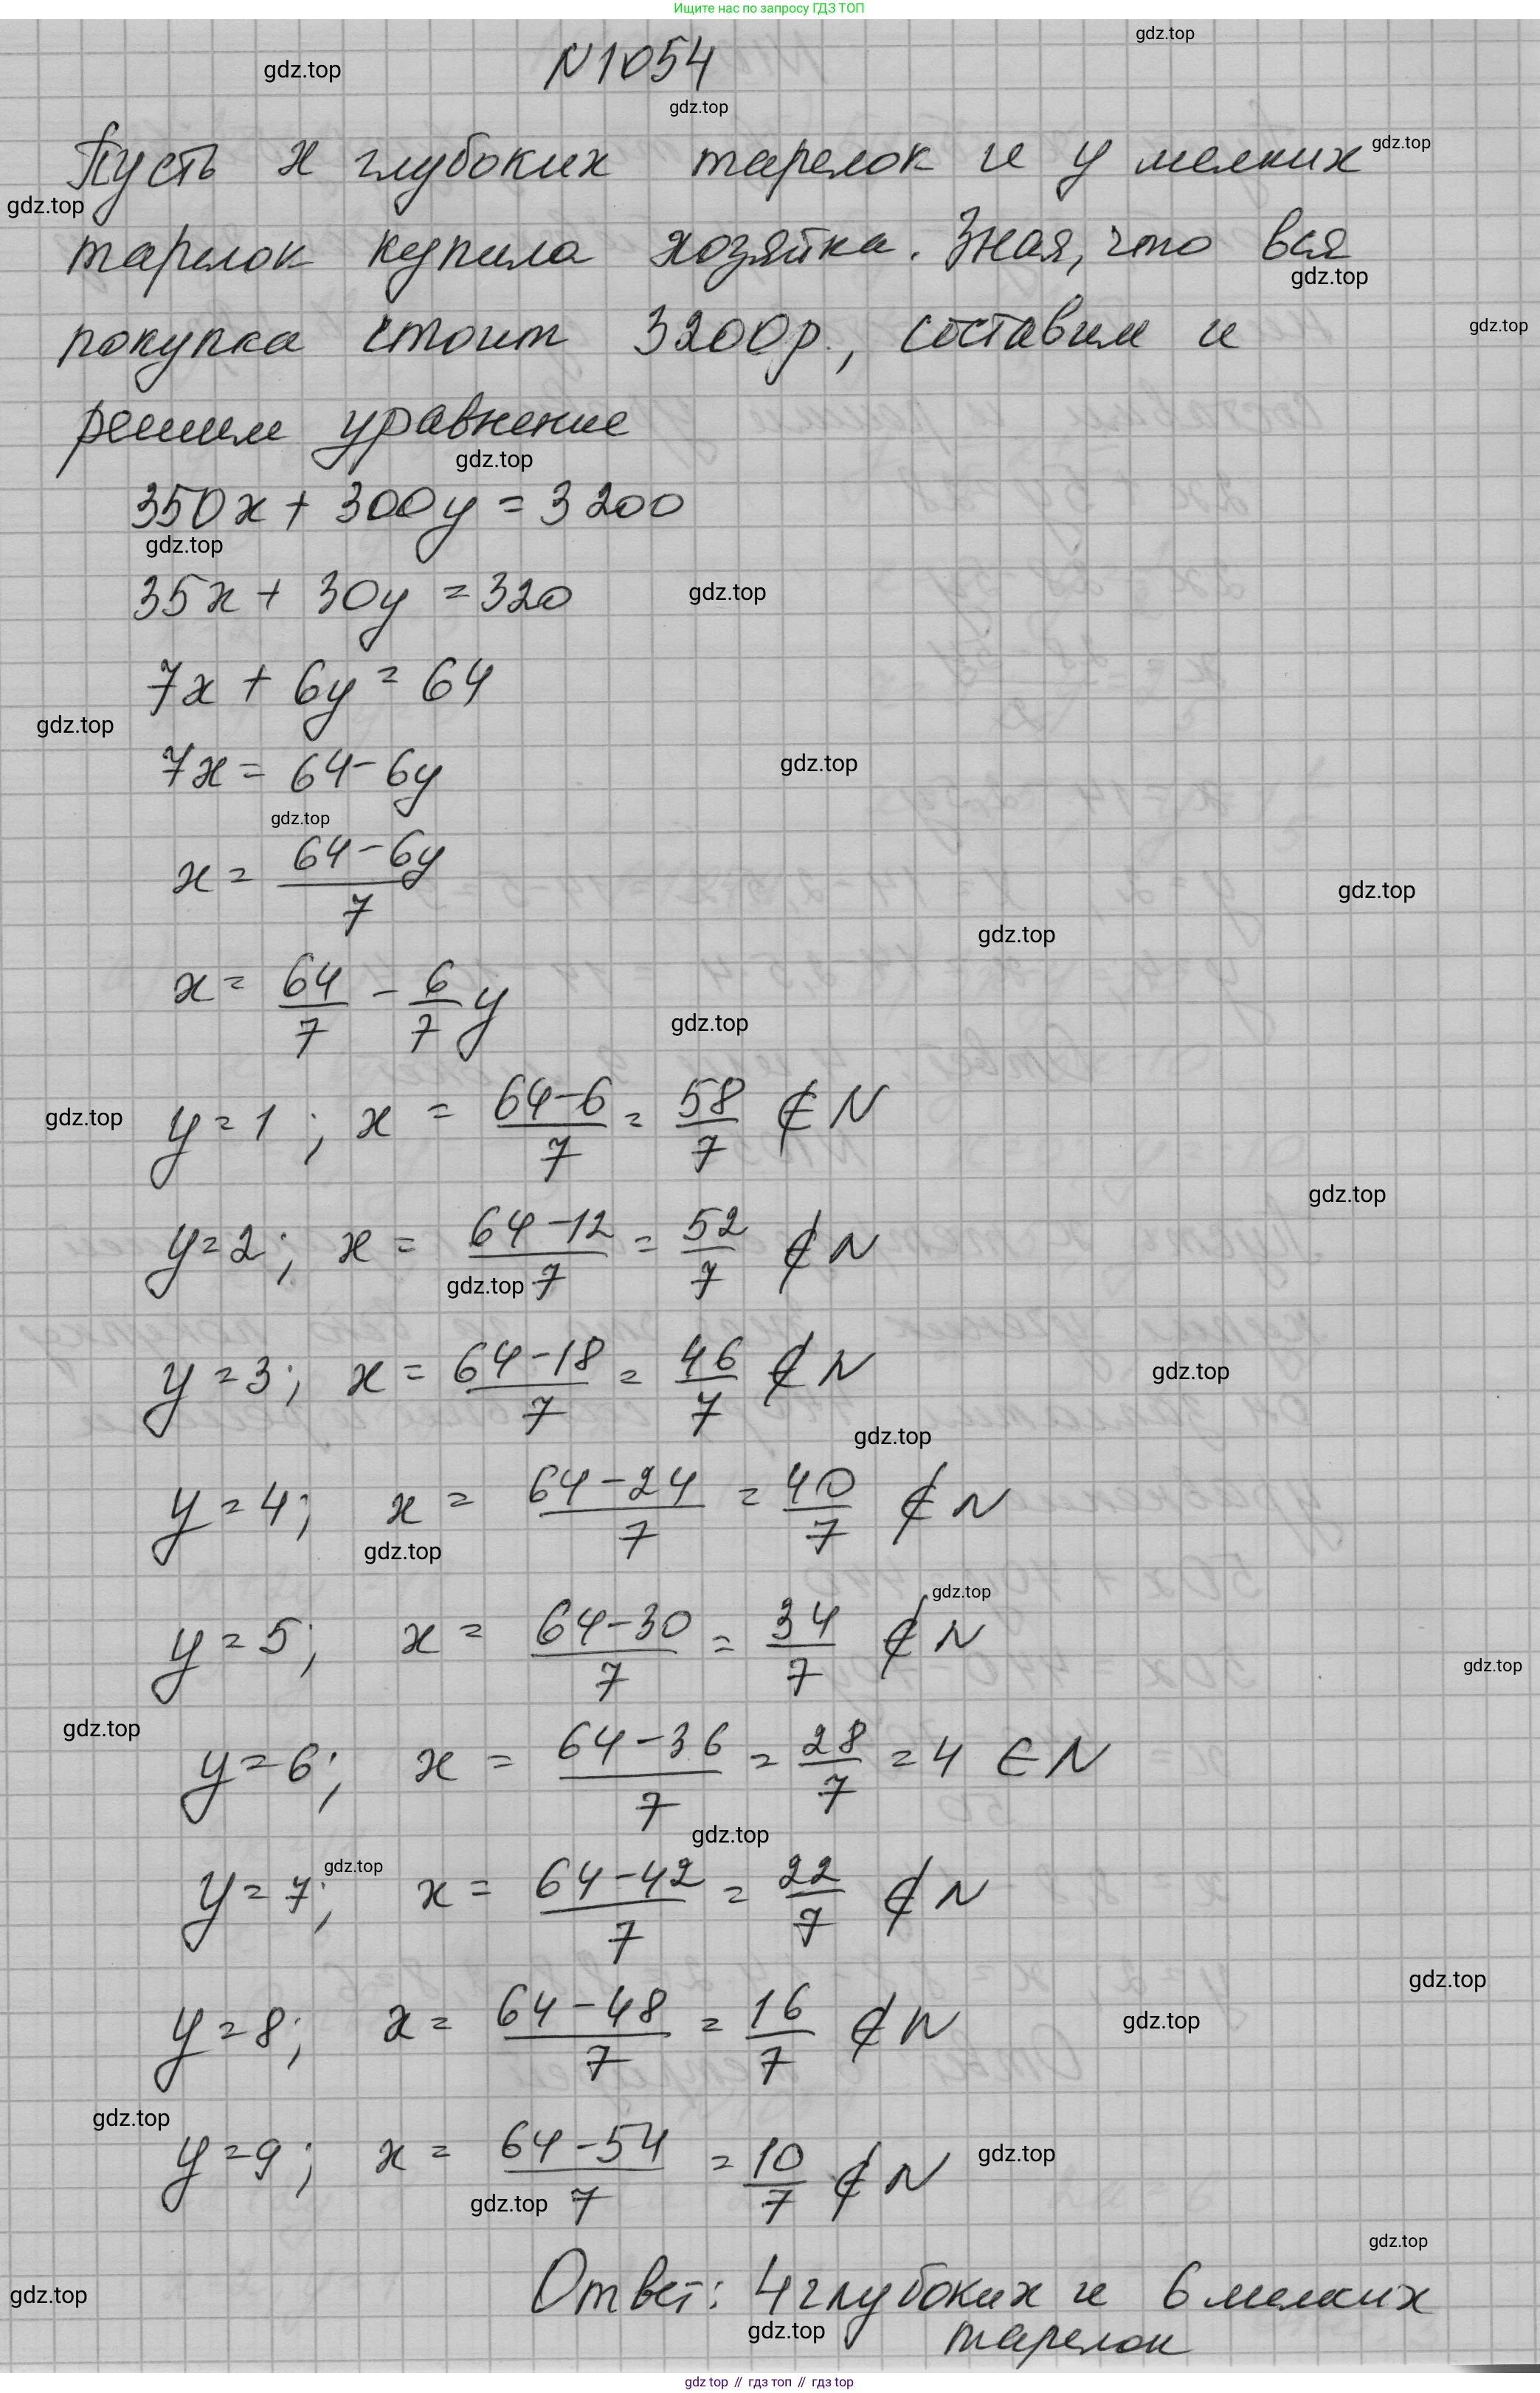 Ищите нас по запросу ГДЗ ТОП
gdz.top
gdz.top
N1054
gdz.top
Пусть x глубоких тарелок и y мелких
gdz.top
gdz.top
тарелок купила хозяйка. Зная, что вся
gdz.top
покупка стоит 3200р., составим и
gdz.top
решим уравнение
gdz.top
350x + 300y = 3200
gdz.top
35x + 30y = 320
gdz.top
7x + 6y = 64
gdz.top
7x = 64 - 6y
gdz.top
gdz.top
x = (64 - 6y)/7
gdz.top
gdz.top
x = 64/7 - 6/7 y
gdz.top
y = 1; x = (64-6)/7 = 58/7 ∉ N
gdz.top
gdz.top
y = 2; x = (64-12)/7 = 52/7 ∉ N
gdz.top
y = 3; x = (64-18)/7 = 46/7 ∉ N
gdz.top
gdz.top
y = 4; x = (64-24)/7 = 40/7 ∉ N
gdz.top
gdz.top
y = 5; x = (64-30)/7 = 34/7 ∉ N
gdz.top
gdz.top
y = 6; x = (64-36)/7 = 28/7 = 4 ∈ N
gdz.top
gdz.top
y = 7; x = (64-42)/7 = 22/7 ∉ N
gdz.top
y = 8; x = (64-48)/7 = 16/7 ∉ N
gdz.top
gdz.top
y = 9; x = (64-54)/7 = 10/7 ∉ N
gdz.top
gdz.top
gdz.top
gdz.top
Ответ: 4 глубоких и 6 мелких
gdz.top
тарелок
gdz top // гдз топ // гдз top